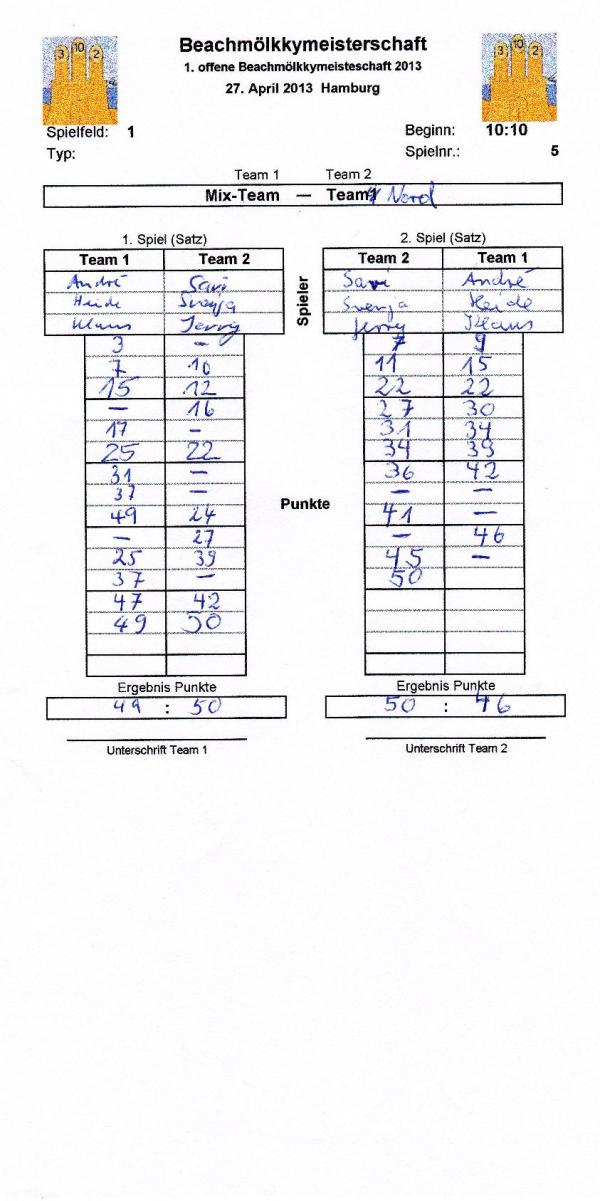 3 10 2
3 10 2
Beachmölkkymeisterschaft
1. offene Beachmölkkymeisteschaft 2013
27. April 2013 Hamburg
Spielfeld: 1 Beginn: 10:10
Typ: Spielnr.: 5
Team 1 Team 2
Mix-Team — Team Nord
1. Spiel (Satz) 2. Spiel (Satz)
Team 1 Team 2 Spieler Team 2 Team 1
André Savi Savi André
Heide Svenja Svenja Heide
Klaus Jerry Jerry Klaus
3 – 7 9
7 10 11 15
15 12 22 22
– 16 27 30
17 – 31 34
25 22 34 39
31 – 36 42
37 – – –
49 24 Punkte 41 –
– 27 – 46
25 39 45 –
37 – 50
47 42
49 50
Ergebnis Punkte Ergebnis Punkte
49 : 50 50 : 46
Unterschrift Team 1 Unterschrift Team 2